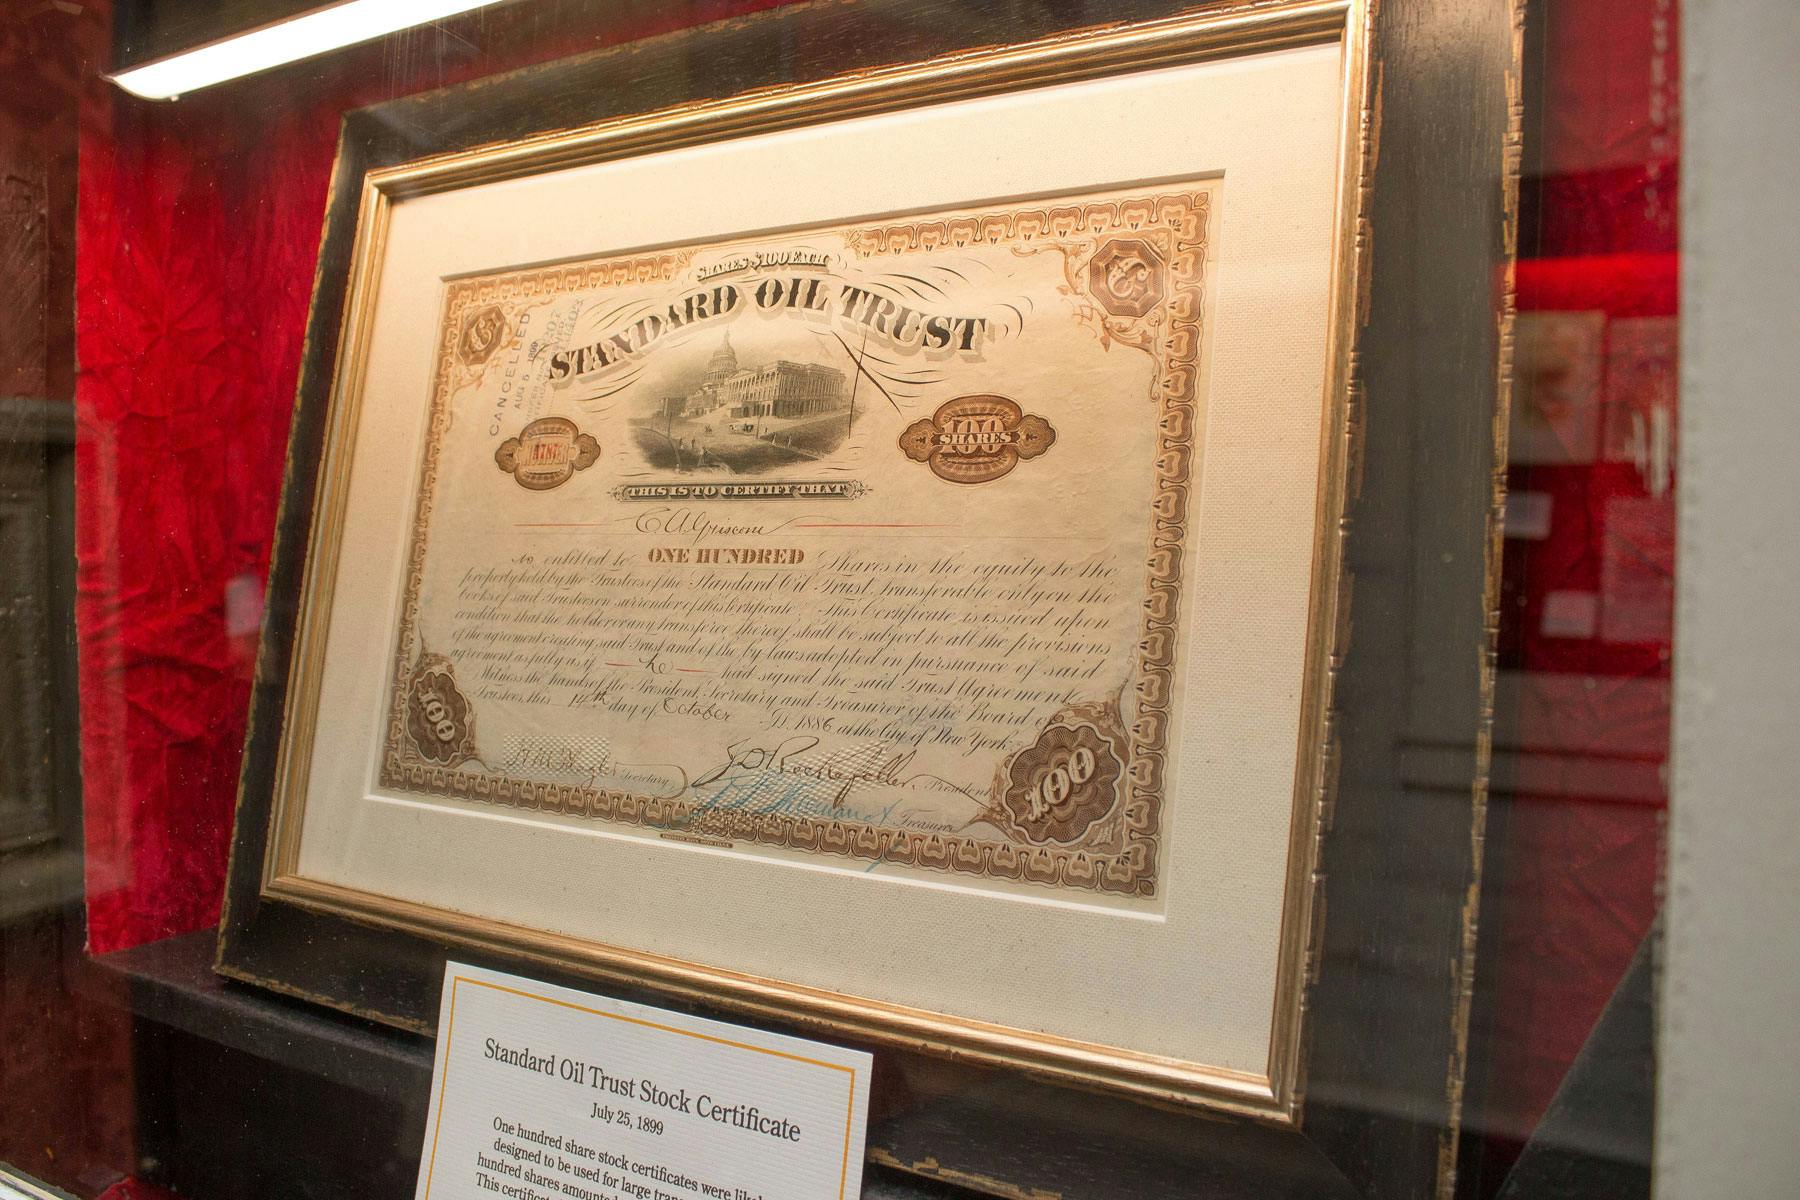 SHARES $100 EACH
STANDARD OIL TRUST
CANCELLED
AUG 5 1899
NUMBER
100
SHARES
THIS IS TO CERTIFY THAT
C A Griscom
is entitled to ONE HUNDRED Shares in the equity to the
property held by the Trustees of the Standard Oil Trust, transferable only on the
books of said Trustees on surrender of this Certificate. This Certificate is issued upon
condition that the holder or any transferee thereof shall be subject to all the provisions
of the agreement creating said Trust and of the by-laws adopted in pursuance of said
agreement as fully as if he had signed the said Trust Agreement.
Witness the hands of the President, Secretary and Treasurer of the Board of
Trustees, this 14th day of October A.D. 1886 at the City of New York.
Secretary
J D Rockefeller. President
Treasurer
100
100
Standard Oil Trust Stock Certificate
July 25, 1899
One hundred share stock certificates were
designed to be used for large
hundred shares
This